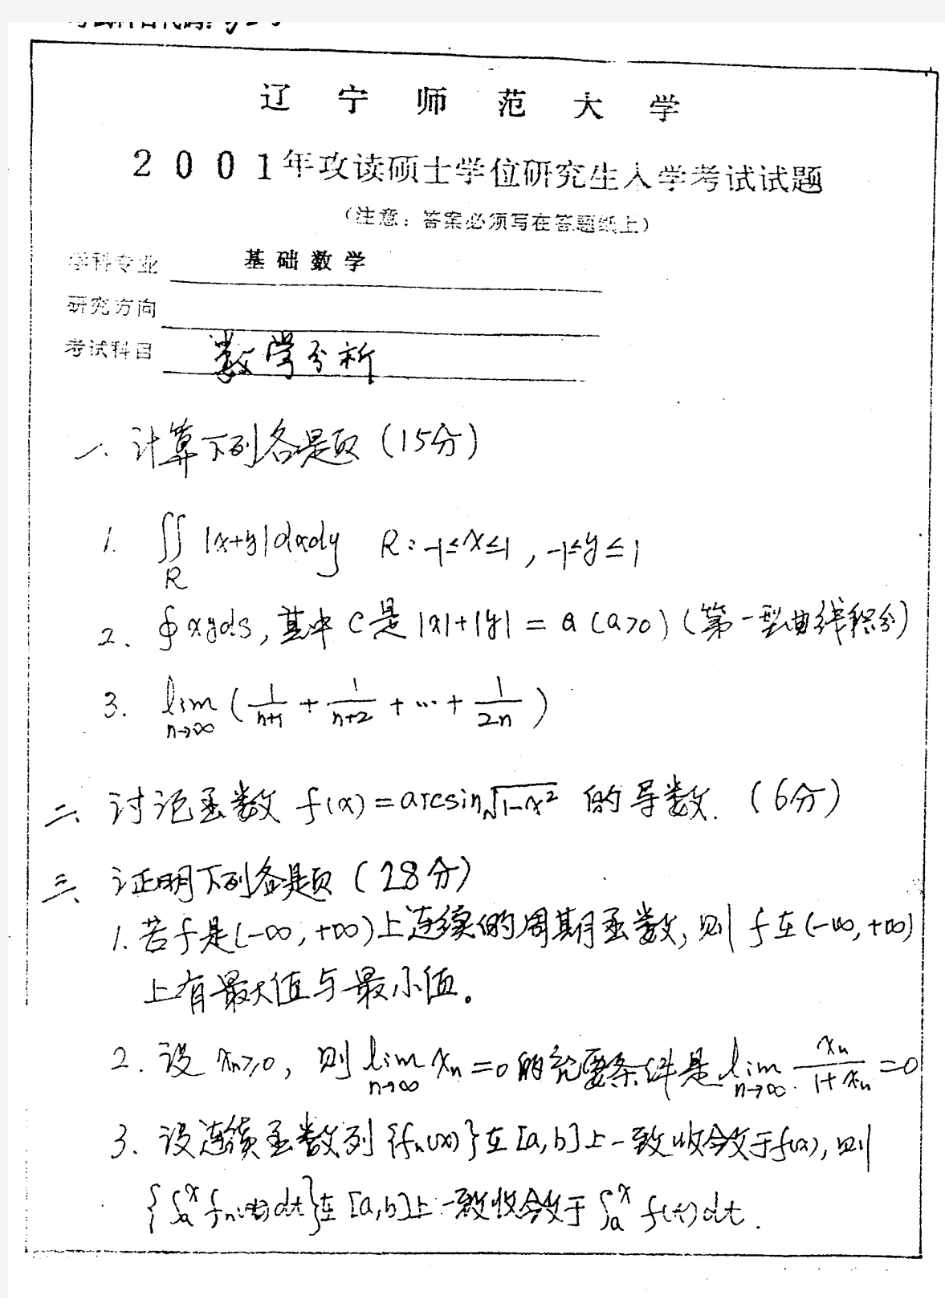 辽宁师范大学
2001年攻读硕士学位研究生入学考试试题
(注意:答案必须写在答题纸上)
学科专业 基础数学
研究方向
考试科目 数学分析
一、计算下列各题(15分)
1. ∬_R |x+y|dxdy R:-1≤x≤1,-1≤y≤1
2. ∮xyds,其中C是|x|+|y|=a(a>0)(第一型曲线积分)
3. lim_{n→∞}(1/(n+1)+1/(n+2)+…+1/(2n))
二、讨论函数f(x)=arcsin√(1-x²)的导数.(6分)
三、证明下列各题(28分)
1.若f是(-∞,+∞)上连续的周期函数,则f在(-∞,+∞)
上有最大值与最小值。
2.设xₙ≥0,则lim_{n→∞}xₙ=0的充要条件是lim_{n→∞}xₙ/(1+xₙ)=0
3.设连续函数列{fₙ(x)}在[a,b]上一致收敛于f(x),则
{∫ₐˣfₙ(t)dt}在[a,b]上一致收敛于∫ₐˣf(t)dt.